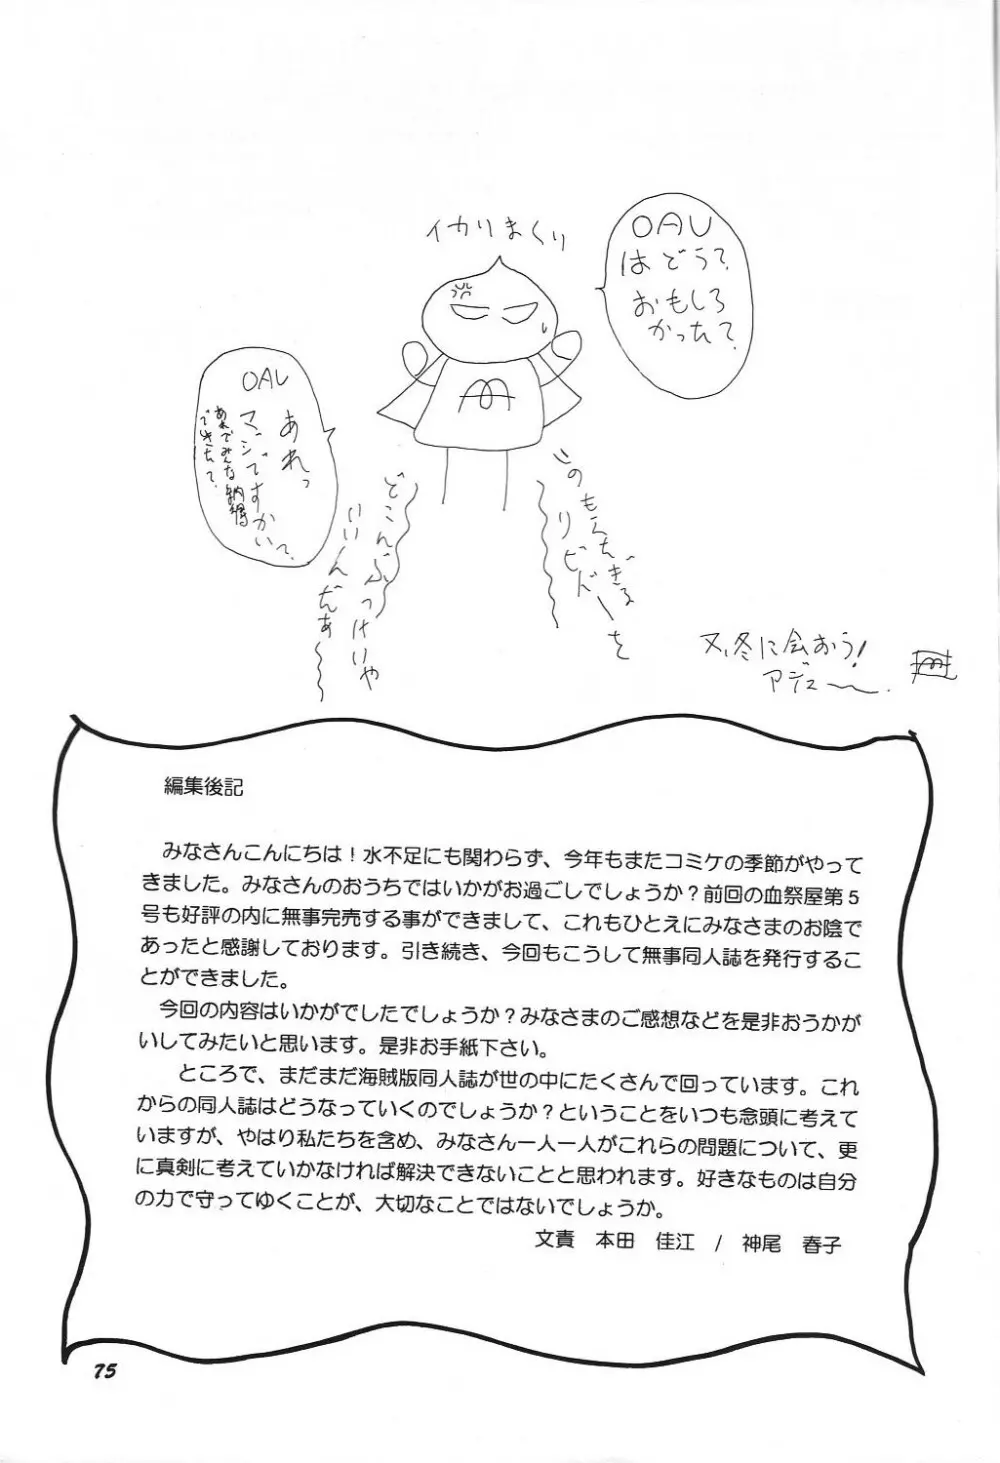 イカりまくり
OAV
はどう?
おもしろ
かった?
OAV
あれっ
マジですかい?
あれでみんな納得
できた?
このもえたぎる
リビドーを
どこにぶつけりゃ
いいんだぁ〜
又、冬に会おう!
アジュー〜.
編集後記
みなさんこんにちは!水不足にも関わらず、今年もまたコミケの季節がやって
きました。みなさんのおうちではいかがお過ごしでしょうか?前回の血祭屋第5
号も好評の内に無事完売する事ができまして、これもひとえにみなさまのお陰で
あったと感謝しております。引き続き、今回もこうして無事同人誌を発行するこ
とができました。
今回の内容はいかがでしたでしょうか?みなさまのご感想などを是非おうかが
いしてみたいと思います。是非お手紙下さい。
ところで、まだまだ海賊版同人誌が世の中にたくさんで回っています。これ
からの同人誌はどうなっていくのでしょうか?ということをいつも念頭に考えて
いますが、やはり私たちを含め、みなさん一人一人がこれらの問題について、更
に真剣に考えていかなければ解決できないことと思われます。好きなものは自分
の力で守ってゆくことが、大切なことではないでしょうか。
文責 本田 佳江 / 神尾 春子
75